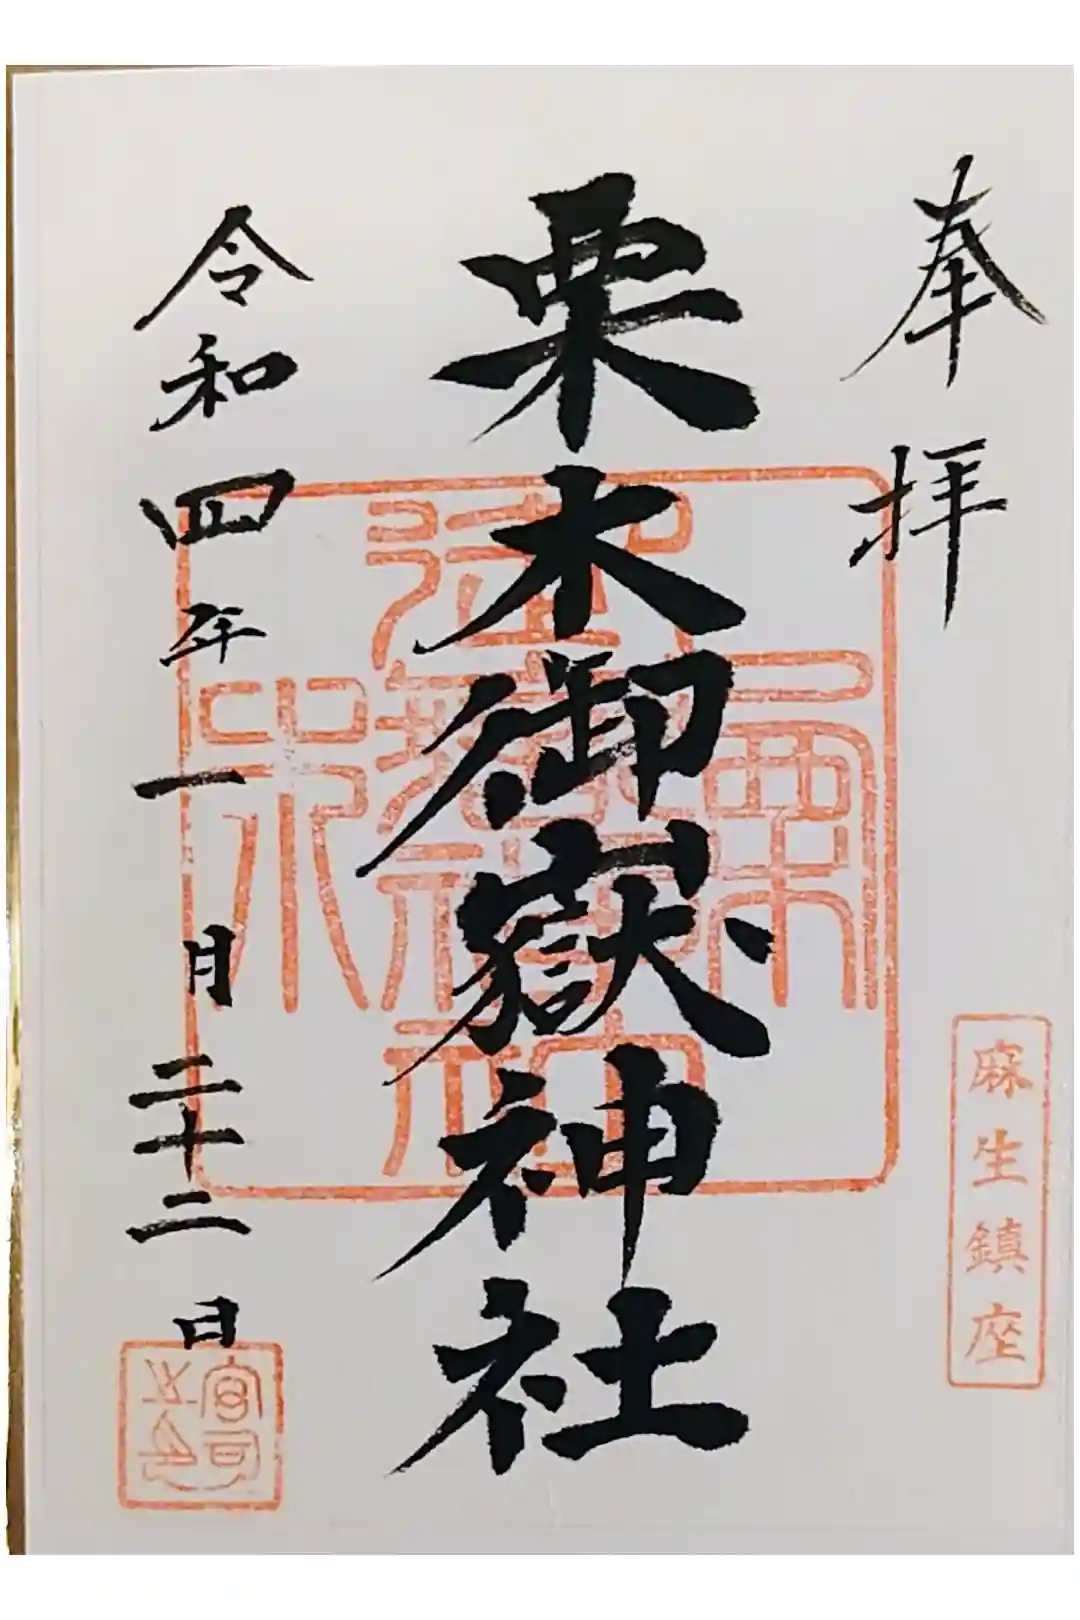 奉拝
麻生鎮座
栗木御嶽神社
令和四年一月二十二日
宮司之印